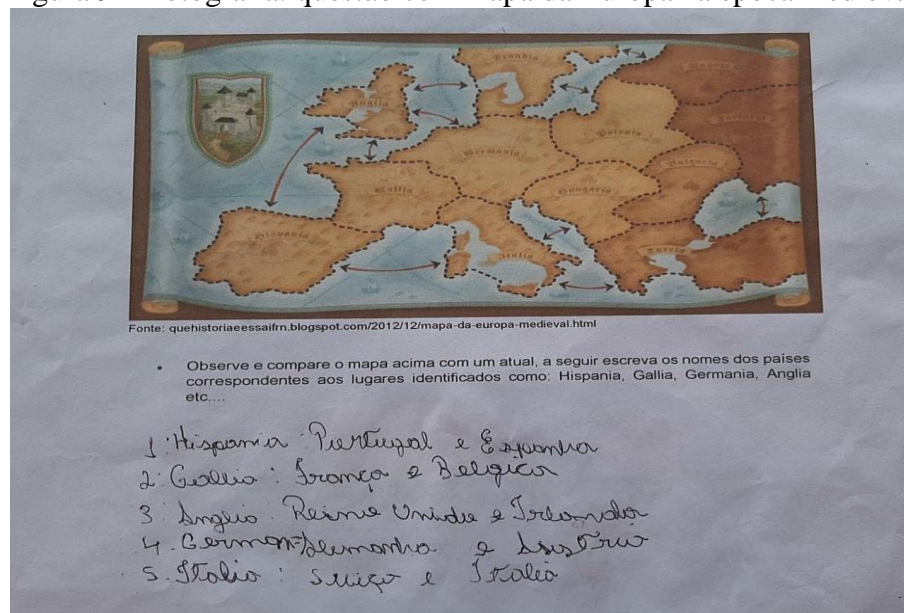 Scandia
Russia
Anglia
Tartaria
Polonia
Germania
Bulgaria
Gallia
Hungaria
Hispania
Italia
Turcia
Fonte: quehistoriaeessaifrn.blogspot.com/2012/12/mapa-da-europa-medieval.html
• Observe e compare o mapa acima com um atual, a seguir escreva os nomes dos países
correspondentes aos lugares identificados como: Hispania, Gallia, Germania, Anglia
etc....
1. Hispania: Purtugal e Espanha
2. Gallia: França e Belgica
3 Anglia: Reino Unido e Irlanda
4. German=Alemanha e Austria
5. Italia: Suiça e Italia